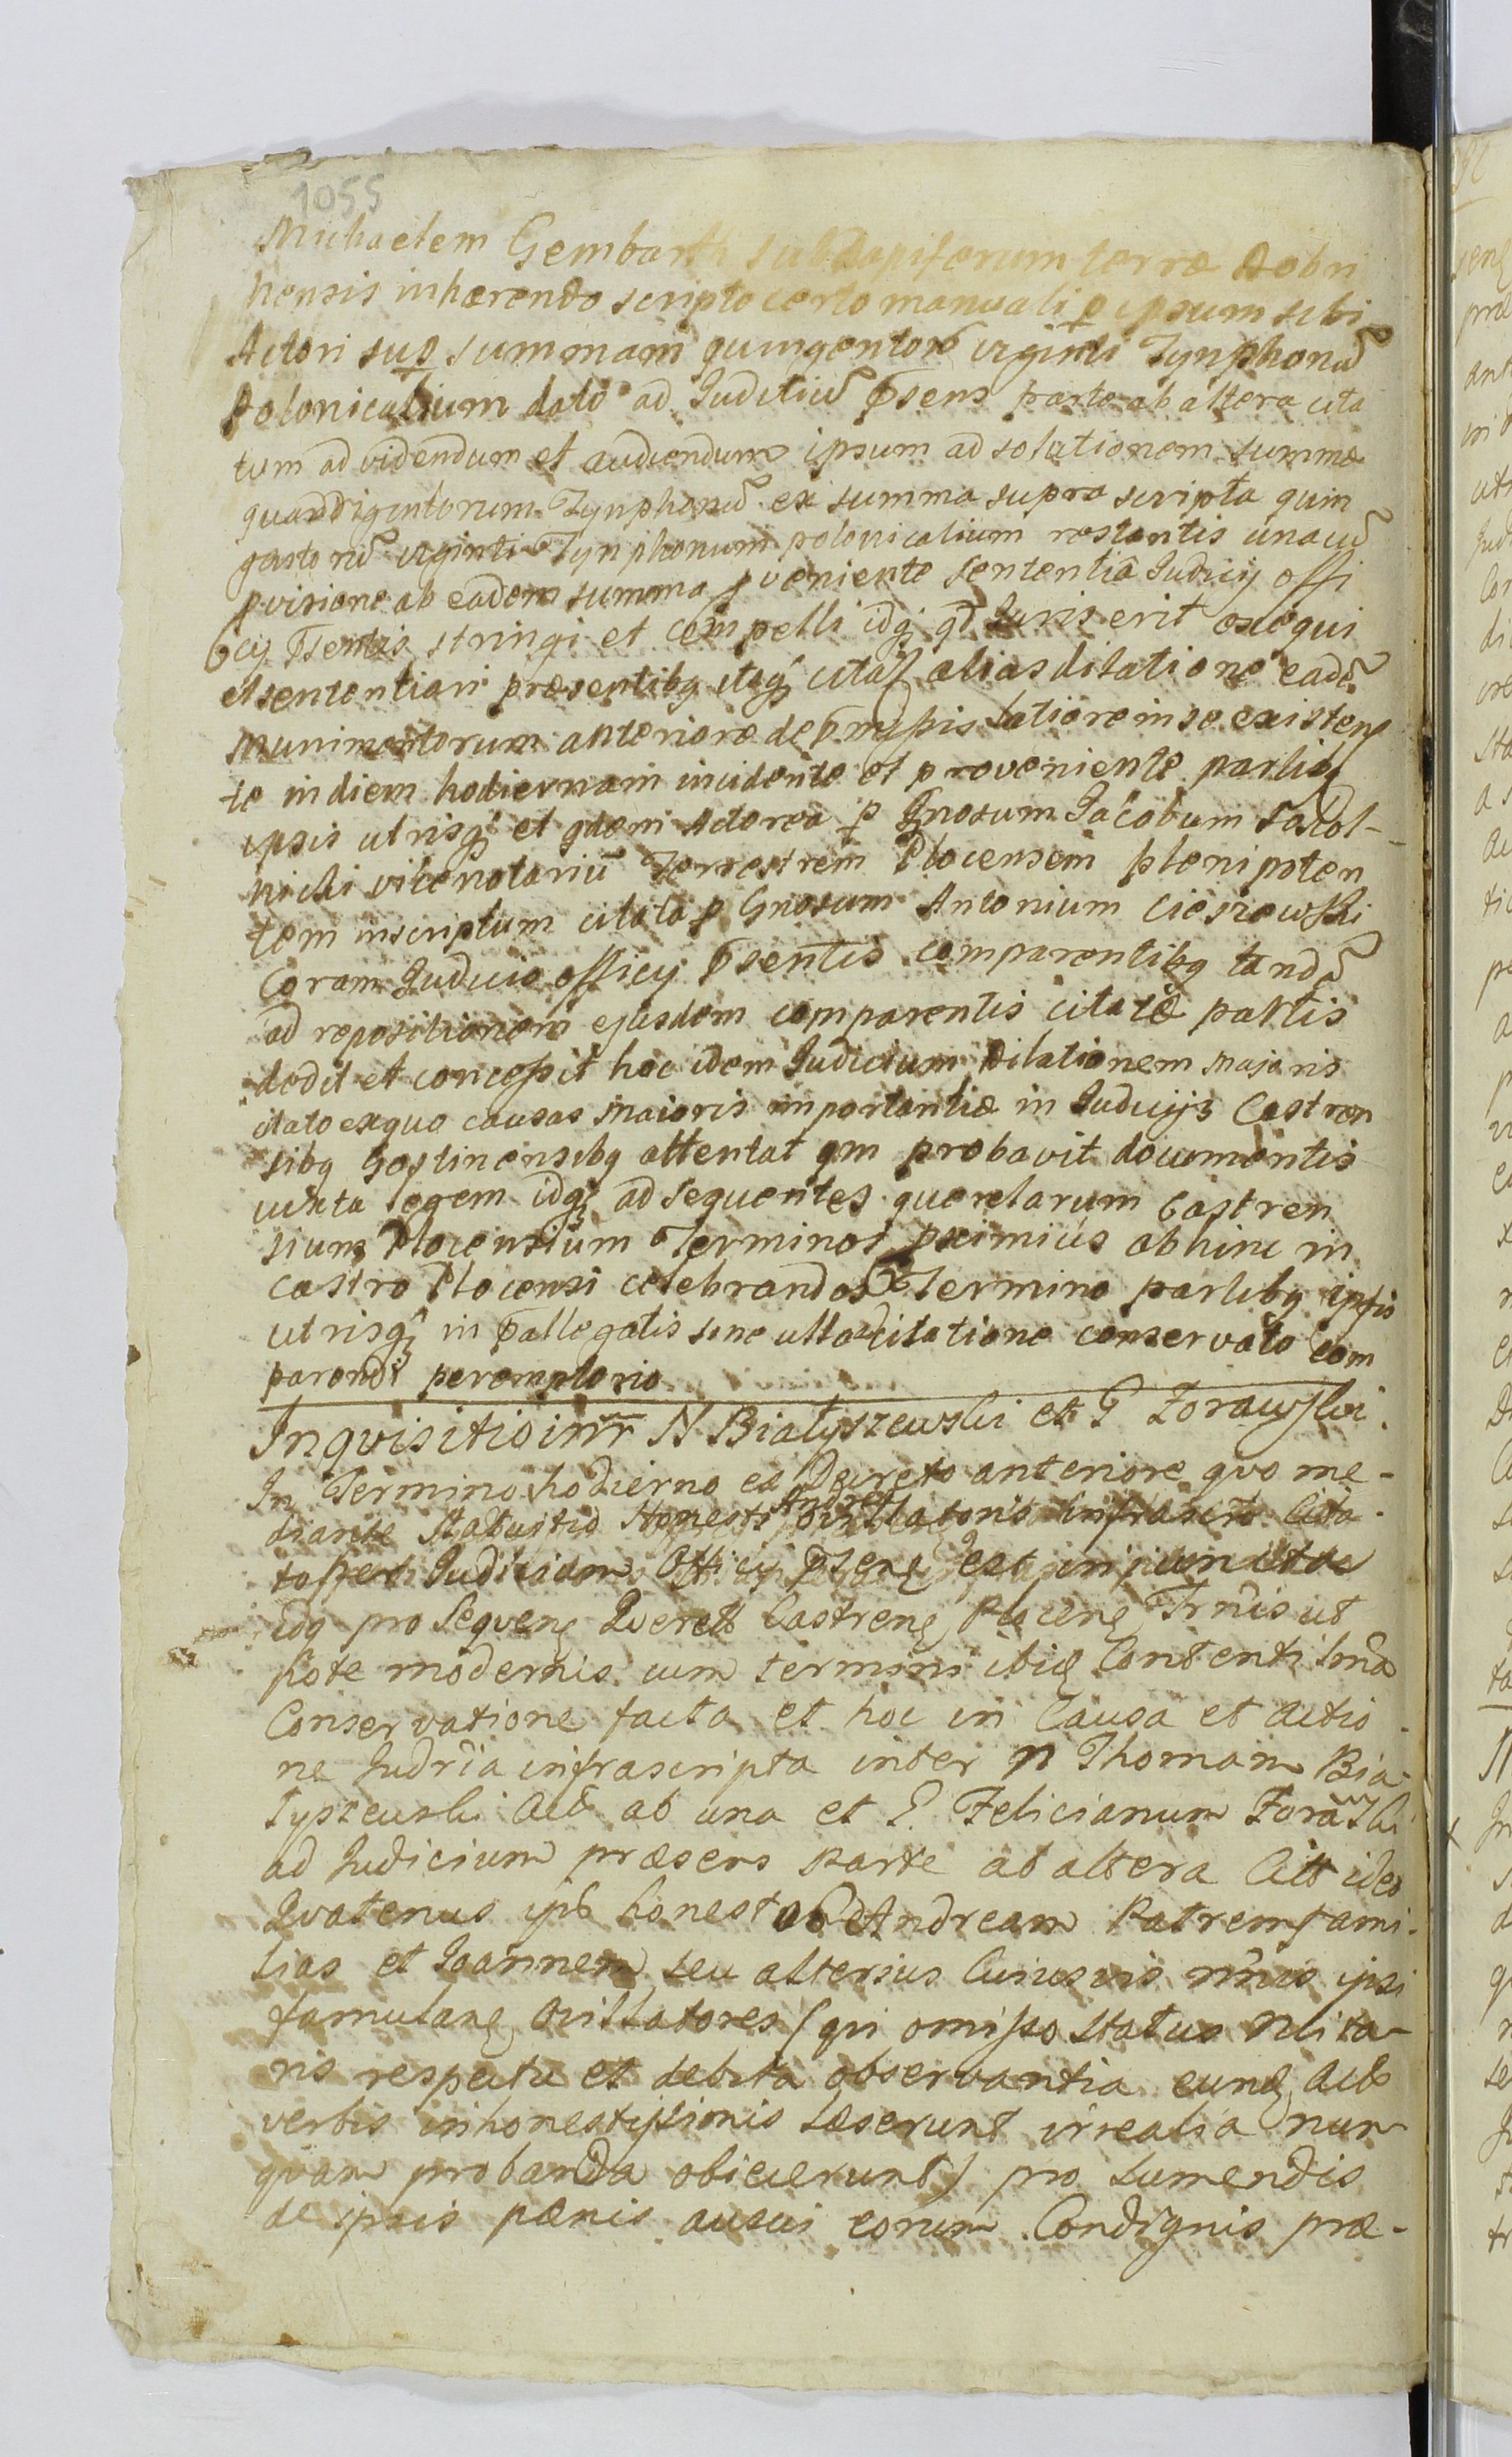 1055
Michaelem Gembart subdapiferum terræ Dobri
nensis inhærendo scripto certo manuali p ipsum sibi
Actori sup summam quingentor viginti Tynphonu
Polonicalium dato ad Juditiu psens parte ab altera cita
tum ad videndum et audiendum ipsum ad solutionem summæ
quadrigentorum Tynphonu ex summa supra scripta quin
gentoru viginti Tynphonum polonicalium restantis unacu
pvisione ab eadem summa pveniente sententia Judicij offi
cij psentis stringi et compelli idq qd Juris erit exequi
et sententiari præsentibq itaq citat alias dilatione eade
munimentorum anteriore de pmissis latiore in se existen
te in diem hodiernam incidente et proveniente partibq
ipsis utrisq et qdem Actorea p Gnosum Jacobum Sadol-
nicki vicenotariu Terrestrem Plocensem plenipoten
tem inscriptum citata p Gnosum Antonium Cieszewski
Coram Judicio officij psentis comparentibq tande
ad repositionem ejusdem comparentis citatæ partis
dedit et concessit hoc idem Judicium Dilationem majoris
citato exquo causas maioris importantiæ in Judicijs Castren
sibq Gostinensibq attentat qm probavit documentis
iuxta legem idq ad sequentes querelarum Castren
sium Plocensium Terminos pximius abhinc in
castro Plocensi celebrandos Termino partibq ipsis
utrisq in pallegatis sine ulla adcitatione conservato com
parendi peremptorio
Inqvisitio intr N Białyszewski et G Zorawski
In Termino hodierno ex Decreto anteriore qvo me-
diante Statuitio Honesti Andreæ ovillatoris infrascr Cita
to per Judicium Officij psens est injuncta
idq pro Seqven Qverell Castren Plocen Trnis ut
pote modernis cum termini ibid Contenti
Conservatione facta et hoc in Causa et actio
ne Judria infrascripta inter N Thomam Bia
łyszewski Act ab una et G. Felicianum Zorawski
ad Judicium præsens parte ab altera Citt ideo
Qvatenus ipse honestos Andream Patremfami-
lias et Joannem seu alterius Cuiusvis nnis ipsi
famulan ovillatores (qvi omisso status Nlita-
ris respectu et debita observantia eund Act
verbis inhonestissimis læserunt irrealia nun
qvam probanda obiecerunt) pro sumendis
de ipsis pænis ausui eorum Condignis præ-